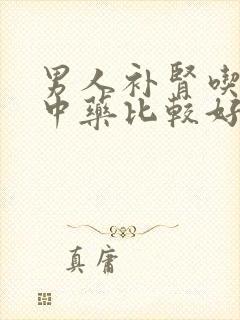 男人补肾喫
中药比较好
真庸